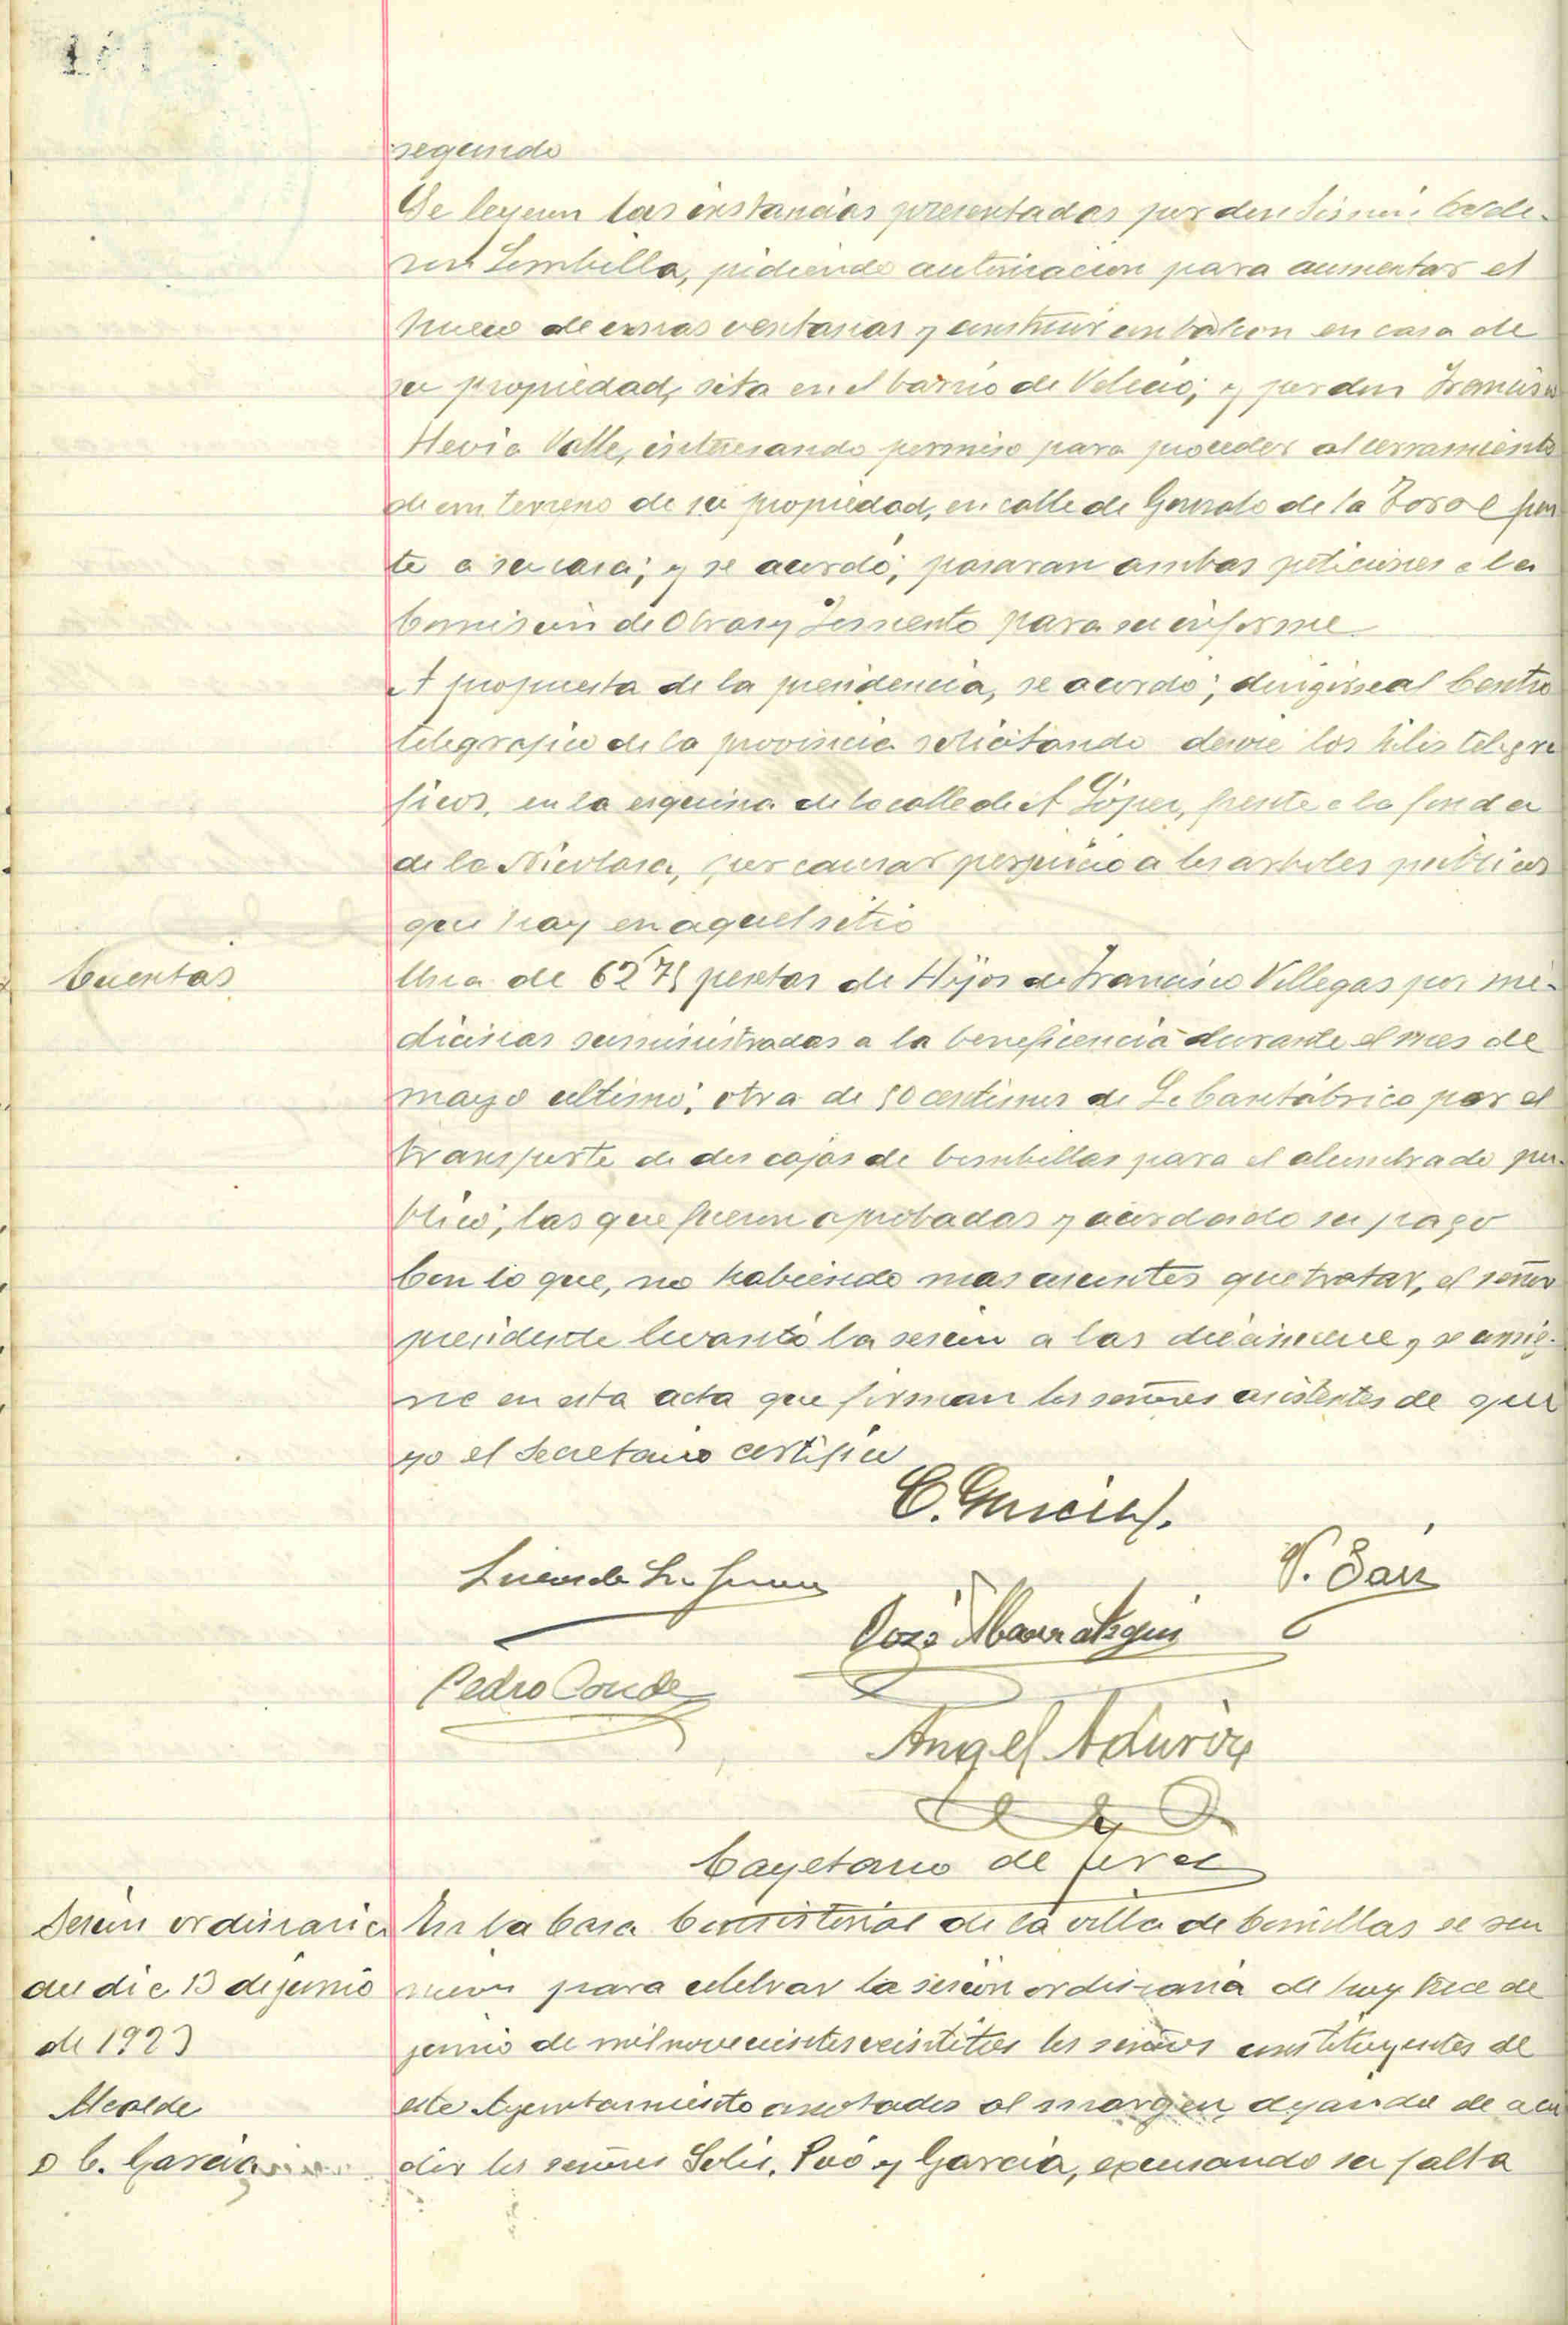 segundo
Se leyeron las instancias presentadas por don
Sembilla, pidiendo autorizacion para aumentar el
hueco de unas ventanas y construir un balcon en casa de
su propiedad, sita en el barrio de Velecio; y por don Francisco
Hevia Valle, interesando permiso para proceder al cerramiento
de un terreno de su propiedad, en calle de Gonzalo de la Torre fren
te a su casa; y se acordó, pasaran ambas peticiones a la
Comision de Obras y Fomento para su informe
A propuesta de la presidencia, se acordó, dirigirse al Centro
telegrafico de la provincia solicitando desvie los hilos telegra
ficos, en la esquina de la calle de A López, frente a la fonda
de la Nicolasa, por causar perjuicio a los arboles publicos
que hay en aquel sitio
Cuentas
Una de 62'75 pesetas de Hijos de Francisco Villegas por me-
dicinas suministradas a la beneficencia durante el mes de
mayo ultimo; otra de 50 centimos de La Cantábrica por el
transporte de dos cajas de bombillas para el alumbrado pu-
blico; las que fueron aprobadas y acordado su pago
Con lo que, no habiendo mas asuntos que tratar, el señor
presidente levantó la sesion a las diecinueve, y se consig-
no en esta acta que firman los señores asistentes de que
yo el Secretario certifico
C. García
V. Saiz
José
Pedro Conde
Angel Aduriz
Cayetano de
Sesion ordinaria
del dia 13 de junio
de 1923
Alcalde
D C. Garcia
En la Casa Consistorial de la villa de Comillas se reu
nieron para celebrar la sesion ordinaria de hoy trece de
junio de mil novecientos veintitres los señores constituyentes de
este Ayuntamiento anotados al margen, dejando de acu
dir los señores Solis, Poo y Garcia, excusando su falta